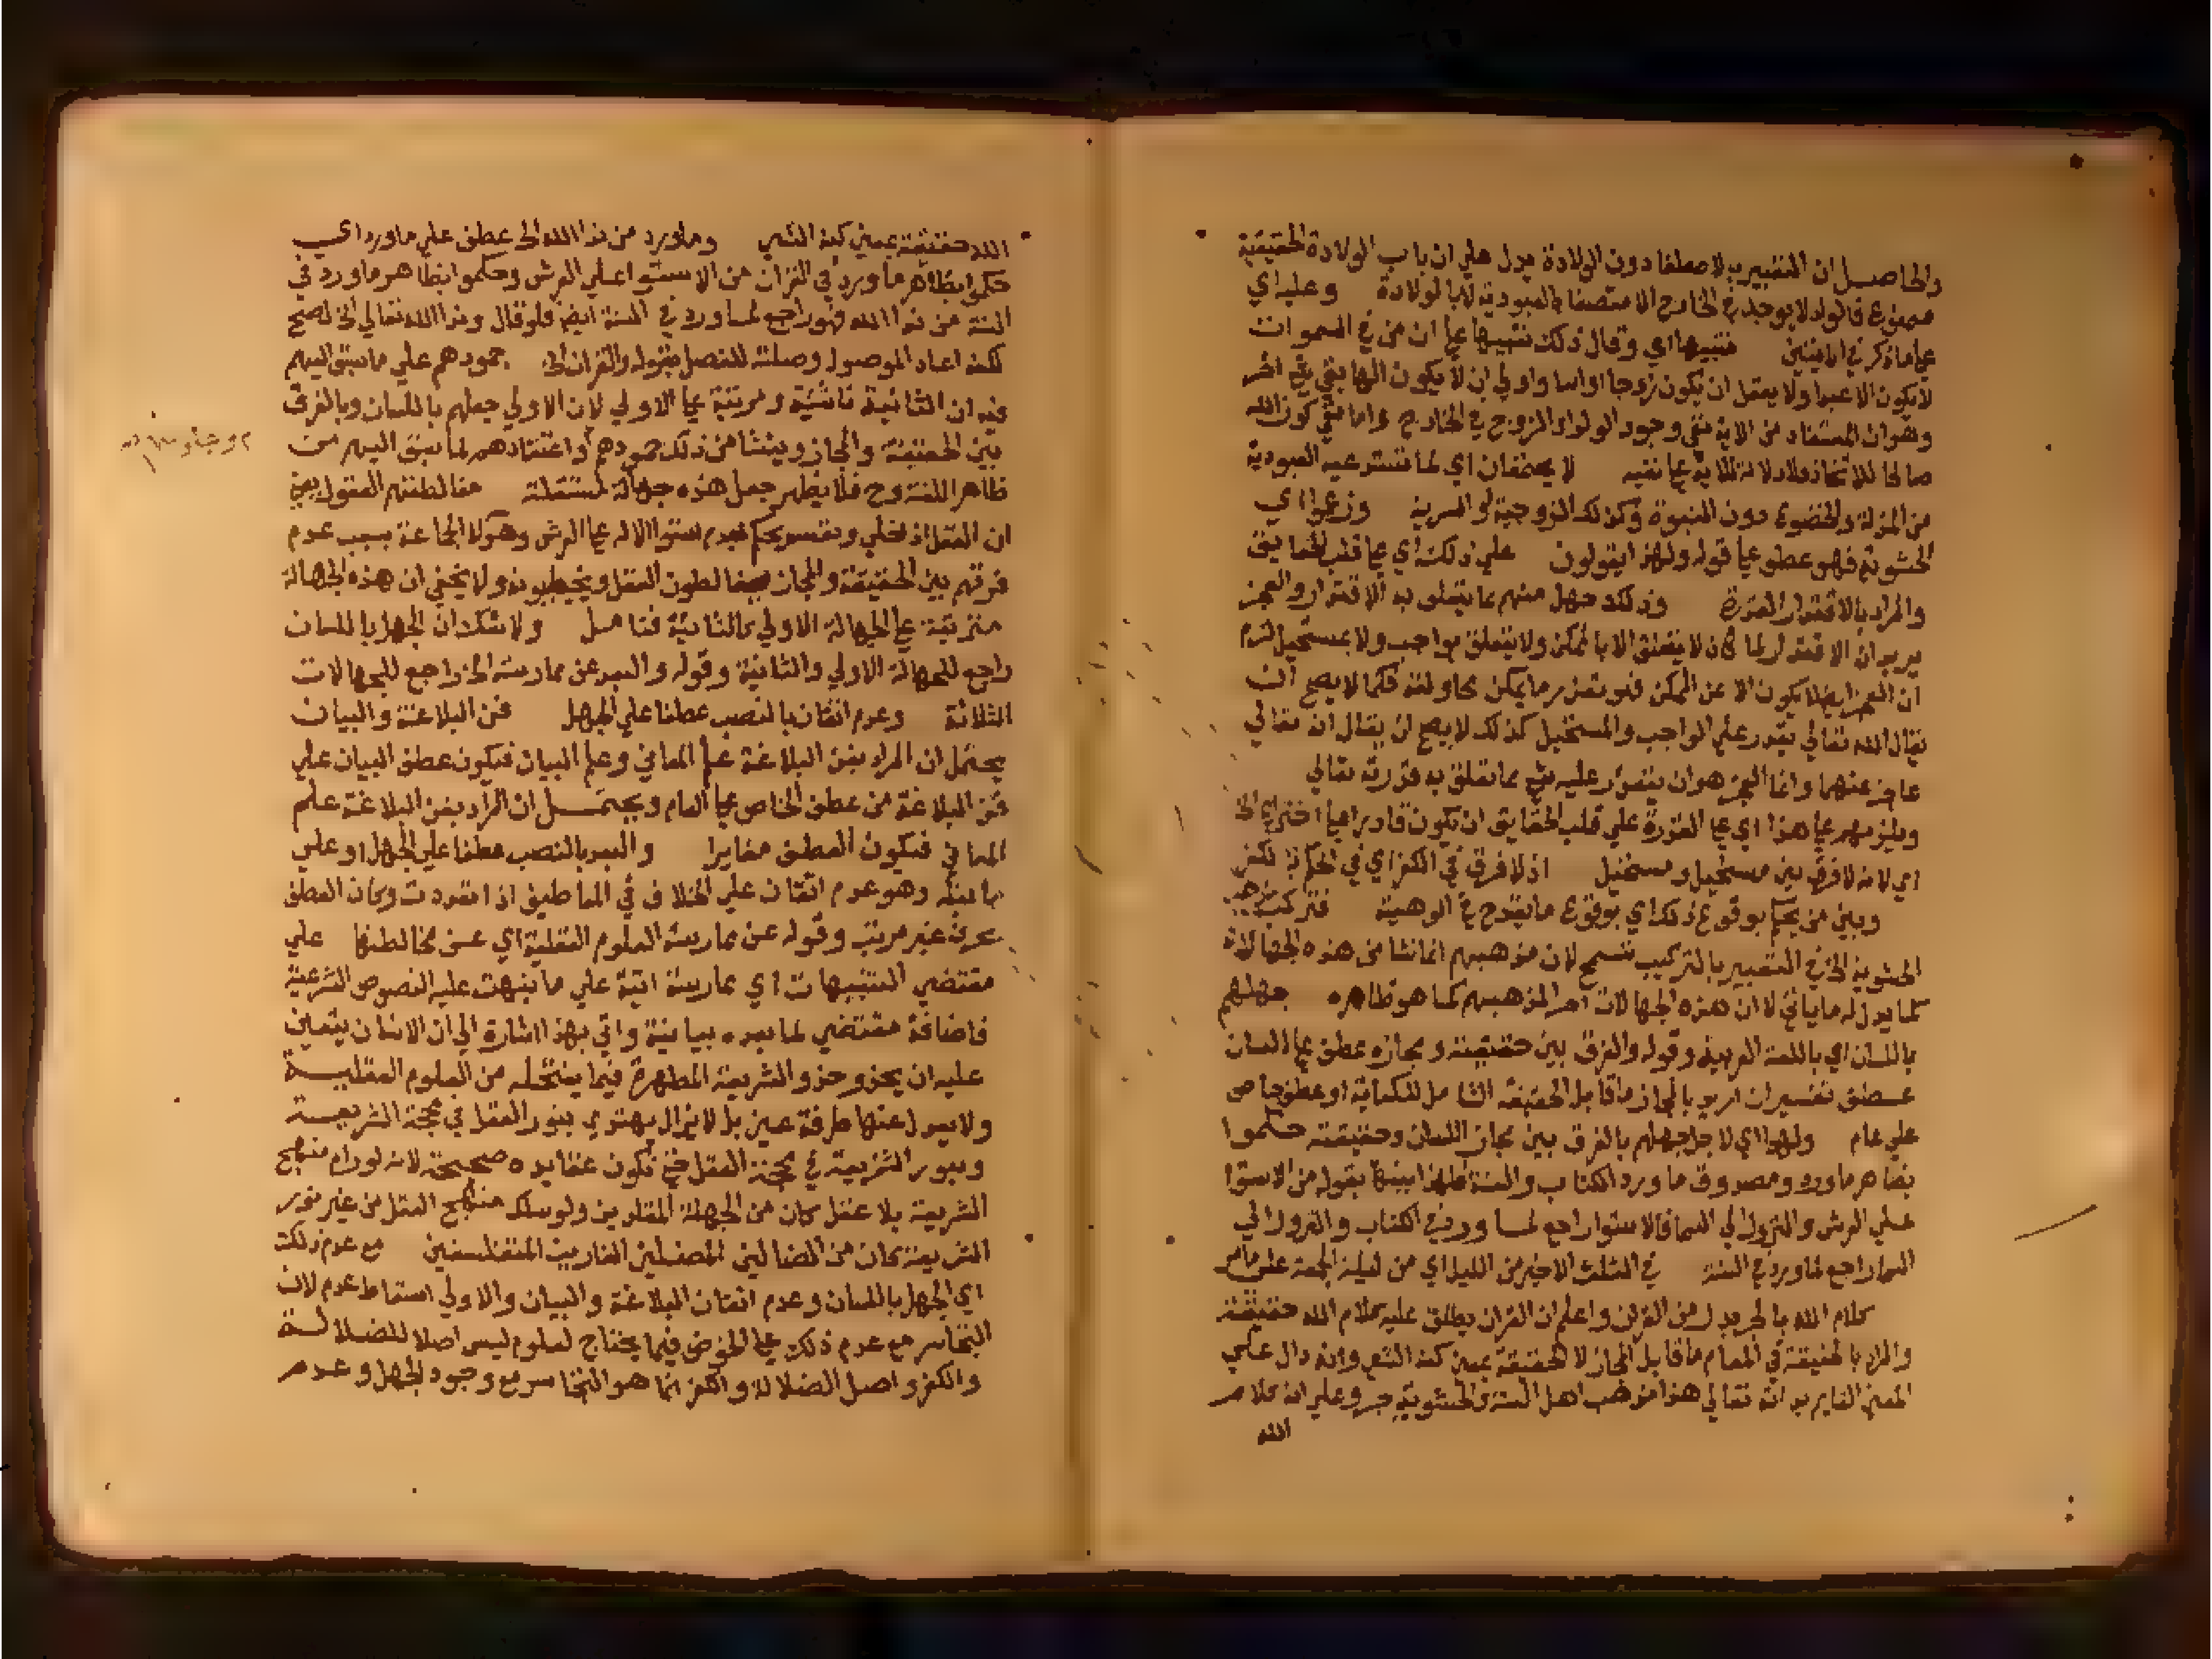 والحاصل ان التعبير بالاصطفا دون الولادة يدل علي ان باب الولادة الحقيقية
ممنوع فالولد لا يوجد في الخارج الا متصفا بالعبودية لا بالولادة وعليه اي
علي ما ذكر في الآيتين تنبيها اي وقال ذلك تنبيها علي ان من في السموات
لا يكون الا عبدا ولا يعقل ان يكون زوجا او ابنا واولي ان لا يكون الها بقي شي اخر
وهو ان المستفاد من الآية نفي وجود الولد او الزوج في الخارج واما نفي كون الله
صالحا للاتخاذ فلا دلالة للآية علي نفيه لا يجتمعان اي لما تستدعيه العبودية
من المذلة والخضوع دون البنوة وكذلك الزوجية والسرية وزعموا اي
الحشوية فهو عطف علي قوله ولهذا يقولون علي ذلك اي علي قلب الحقايق
والمراد بالاقتدار القدرة وذلك جهل منهم بما يتعلق به الاقتدار والعجز
يريد ان الاقتدار لما كان لا يتعلق الا بالممكن ولا يتعلق بواجب ولا بمستحيل لزم
ان العجز ايضا لا يكون الا عن الممكن فهو تعذر ما يمكن محاولته فكما لا يصح ان
يقال الله تعالي يقدر علي الواجب والمستحيل كذلك لا يصح ان يقال انه تعالي
عاجز عنهما وانما العجز هو ان يتعذر عليه شي مما تتعلق به قدرته تعالي
ويلزمهم علي هذا اي علي القدرة علي قلب الحقايق ان يكون قادرا علي اختراع الخ
اي لانه لا فرق بين مستحيل ومستحيل اذ لا فرق في الكفر اي في الحكم بالكفر
وبين من يحكم بوقوع ذلك اي بوقوع ما يقدح في الوهيته فتركب مذهب
الحشوية الخ في التعبير بالتركيب تسمح لان مذهبهم انما نشا من هذه الجهالات
كما يدل له ما ياتي لا ان هذه الجهالات اجزا لمذهبهم كما هو ظاهره جهلهم
باللسان اي باللغة العربية وقوله والفرق بين حقيقته ومجازه عطف علي اللسان
عطف تفسير ان اريد بالمجاز ما قابل الحقيقة الشامل للكناية او عطف خاص
علي عام ولهذا اي لاجل جهلهم بالفرق بين مجاز اللسان وحقيقته حكموا
بظاهر ما ورد ومصدوق ما ورد الكتاب والسنة فلهذا بينها بقوله من الاستوا
علي العرش والنزول الي السما فالاستوا راجع لما ورد في الكتاب والنزول الي
السما راجع لما ورد في السنة في الثلث الاخير من الليل اي من ليلة الجمعة علي ما مر
كلام الله بالجر بدل من القران واعلم ان القران يطلق عليه كلام الله حقيقة
والمراد بالحقيقة في المقام ما قابل المجاز لا الحقيقة بمعني كنه الشي وانه دال علي
المعني القايم بذاته تعالي هذا مذهب اهل السنة والحشوية جروا علي انه كلام
الله
الله حقيقة بمعني كنه الشي وما ورد من نذا الله الخ عطف علي ما ورد اي
حكموا بظاهر ما ورد في القران من الاستوا علي العرش وحكموا بظاهر ما ورد في
السنة من نذا الله فهو راجع لما ورد في السنة ايضا فلو قال ونذا الله تعالي الخ لصح
لكنه اعاد الموصول وصلته للفصل بقوله والقران الخ جمودهم علي ما يسبق اليهم
فيه ان الثانية ناشئة ومرتبة علي الاولي لان الاولي جهلهم باللسان وبالفرق
بين الحقيقة والمجاز وينشا من ذلك جمودهم واعتقادهم لما يسبق اليهم من
ظاهر اللغة وح فلا يظهر جعل هذه جهالة مستقلة مغالطتهم العقول يعني
ان العقل اذا خلي ونفسه يحكم بعدم استوا الاله علي العرش وهولا الجماعة بسبب عدم
فرقهم بين الحقيقة والمجاز يغالطون العقل ويخبطونه ولا يخفي ان هذه الجهالة
مترتبة علي الجهالة الاولي كالثانية فتامل ولا شك ان الجهل باللسان
راجع للجهالة الاولي والثانية وقوله والبعد عن ممارسة الخ راجع للجهالات
الثلاثة وعدم اتقان بالنصب عطفا علي الجهل فن البلاغة والبيان
يحتمل ان المراد بفن البلاغة علم المعاني وعلم البيان فيكون عطف البيان علي
فن البلاغة من عطف الخاص علي العام ويحتمل ان المراد بفن البلاغة علم
المعاني فيكون العطف مغايرا والبعد بالنصب عطفا علي الجهل او علي
ما قبله وهو عدم اتقان علي الخلاف في المعاطيف اذا تعددت وكان العطف
بحرف غير مرتب وقوله عن ممارسة العلوم العقلية اي عن مخالطتها علي
مقتضي التنبيهات اي ممارسة اتية علي ما نبهت عليه النصوص الشرعية
فاضافة مقتضي لما بعده بيانية واتي بهذا اشارة الي ان الانسان يتعين
عليه ان يحذو حذو الشريعة المطهرة فيما ينتحله من العلوم العقلية
ولا يعدل عنها طرفة عين بل لا يزال يهتدي بنور العقل في محجة الشريعة
وبنور الشريعة في محجة العقل حتي تكون عقايده صحيحة لانه لو رام منهج
الشريعة بلا عقل كان من الجهلة المقلدين ولو سلك منهج العقل من غير نور
الشريعة كان من الضالين المضلين المتفلسفين مع عدم ذلك
اي الجهل باللسان وعدم اتقان البلاغة والبيان والاولي اسقاط عدم لان
التجاسر مع عدم ذلك علي الخوض فيما يحتاج لعلوم ليس اصلا للضلالة
والكفر واصل الضلالة والكفر انما هو التجاسر مع وجود الجهل وعدم